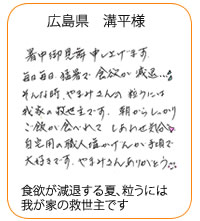 広島県　溝平様
暑中御見舞申し上げます。
毎日毎日猛暑で食欲が減退...
そんな時、やまみさんの粒うには
我家の救世主です。朝からしっかり
ご飯が食べれてしあわせ気分
自宅用の職人塩かげんが手頃で
大好きです。やまみさんありがとう
食欲が減退する夏、粒うには
我が家の救世主です